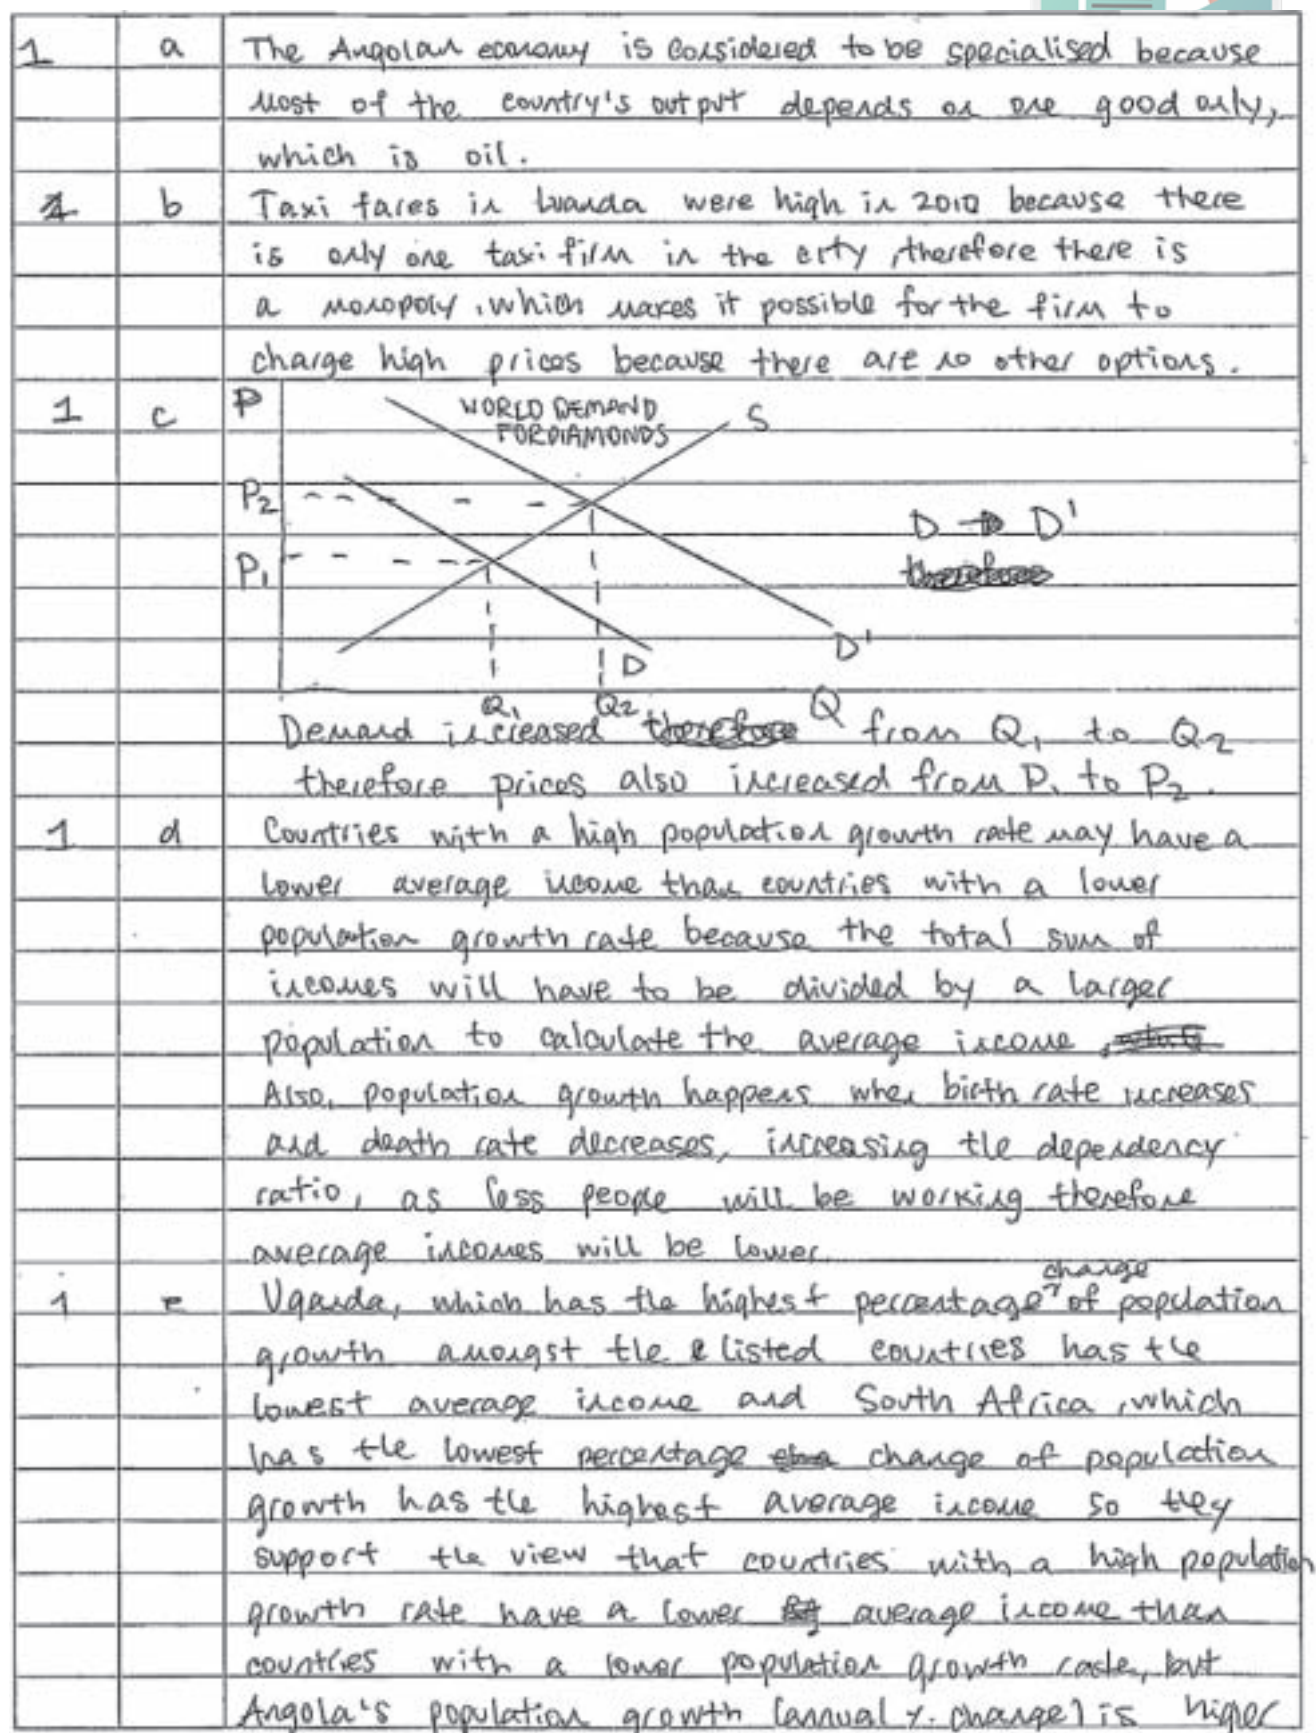 1 a The Angolan economy is considered to be specialised because
most of the country's output depends on one good only,
which is oil.
1 b Taxi fares in Luanda were high in 2010 because there
is only one taxi firm in the city, therefore there is
a monopoly, which makes it possible for the firm to
charge high prices because there are no other options.
1 c P WORLD DEMAND
FOR DIAMONDS S
P2
D → D'
P1 therefore
D D'
Q1 Q2 Q
Demand increased therefore from Q1 to Q2
therefore prices also increased from P1 to P2.
1 d Countries with a high population growth rate may have a
lower average income than countries with a lower
population growth rate because the total sum of
incomes will have to be divided by a larger
population to calculate the average income.
Also, population growth happens when birth rate increases
and death rate decreases, increasing the dependency
ratio, as less people will be working therefore
average incomes will be lower.
change
1 e Uganda, which has the highest percentage of population
growth amongst the listed countries has the
lowest average income and South Africa, which
has the lowest percentage change of population
growth has the highest average income so they
support the view that countries with a high population
growth rate have a lower average income than
countries with a lower population growth rate, but
Angola's population growth (annual % change) is higher